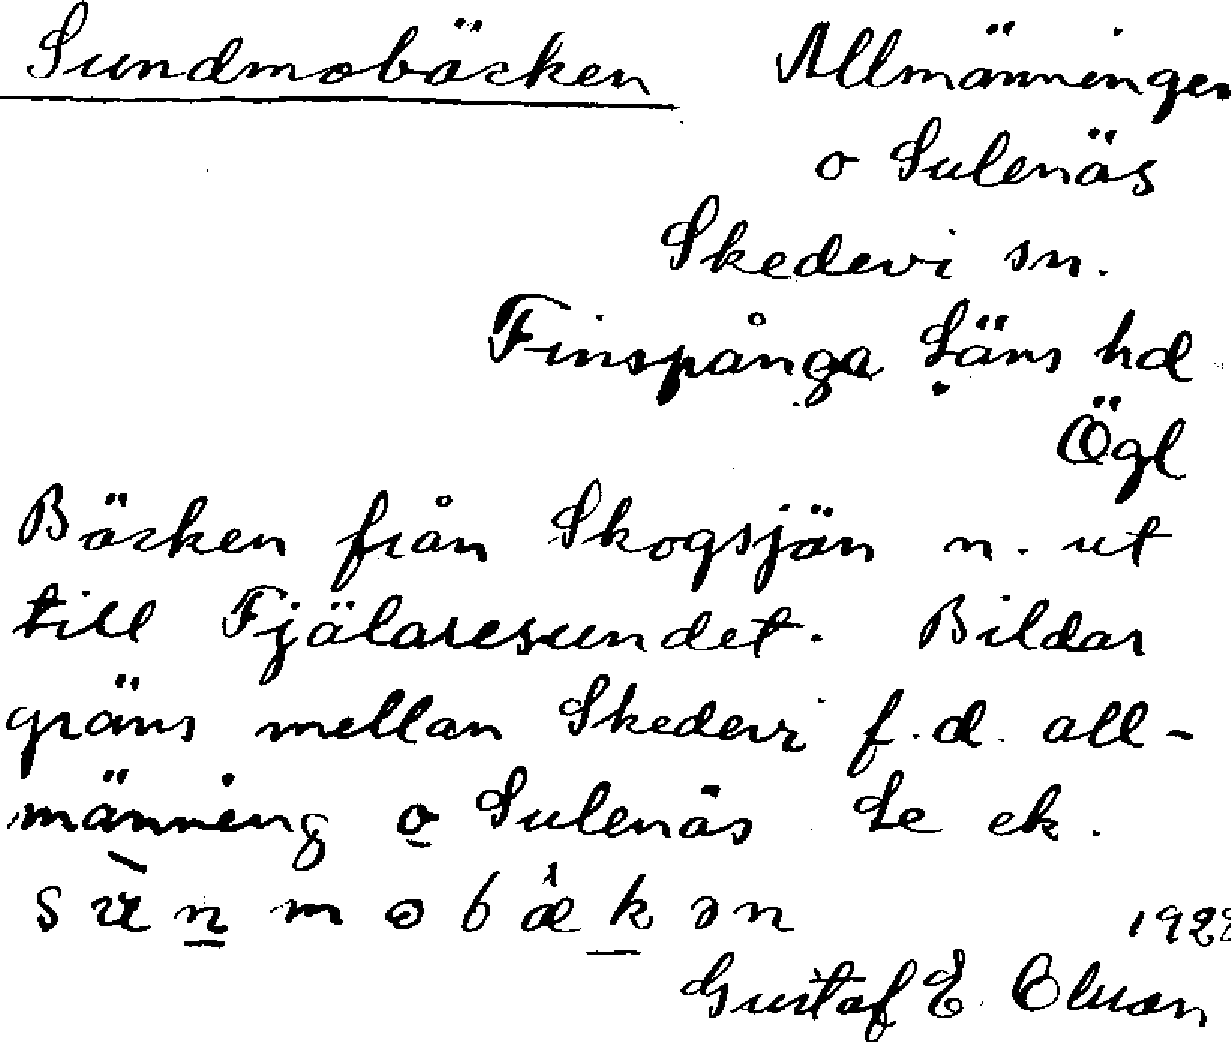 Sundmobäcken Allmänningen
o Sulenäs
Skedevi sn.
Finspånga Läns hd
Ögl
Bäcken från Skogsjön n. ut
till Fjälaresundet. Bildar
gräns mellan Skedevi f.d. all-
männing o Sulenäs Se ek.
1928
Gustaf E. Olsson